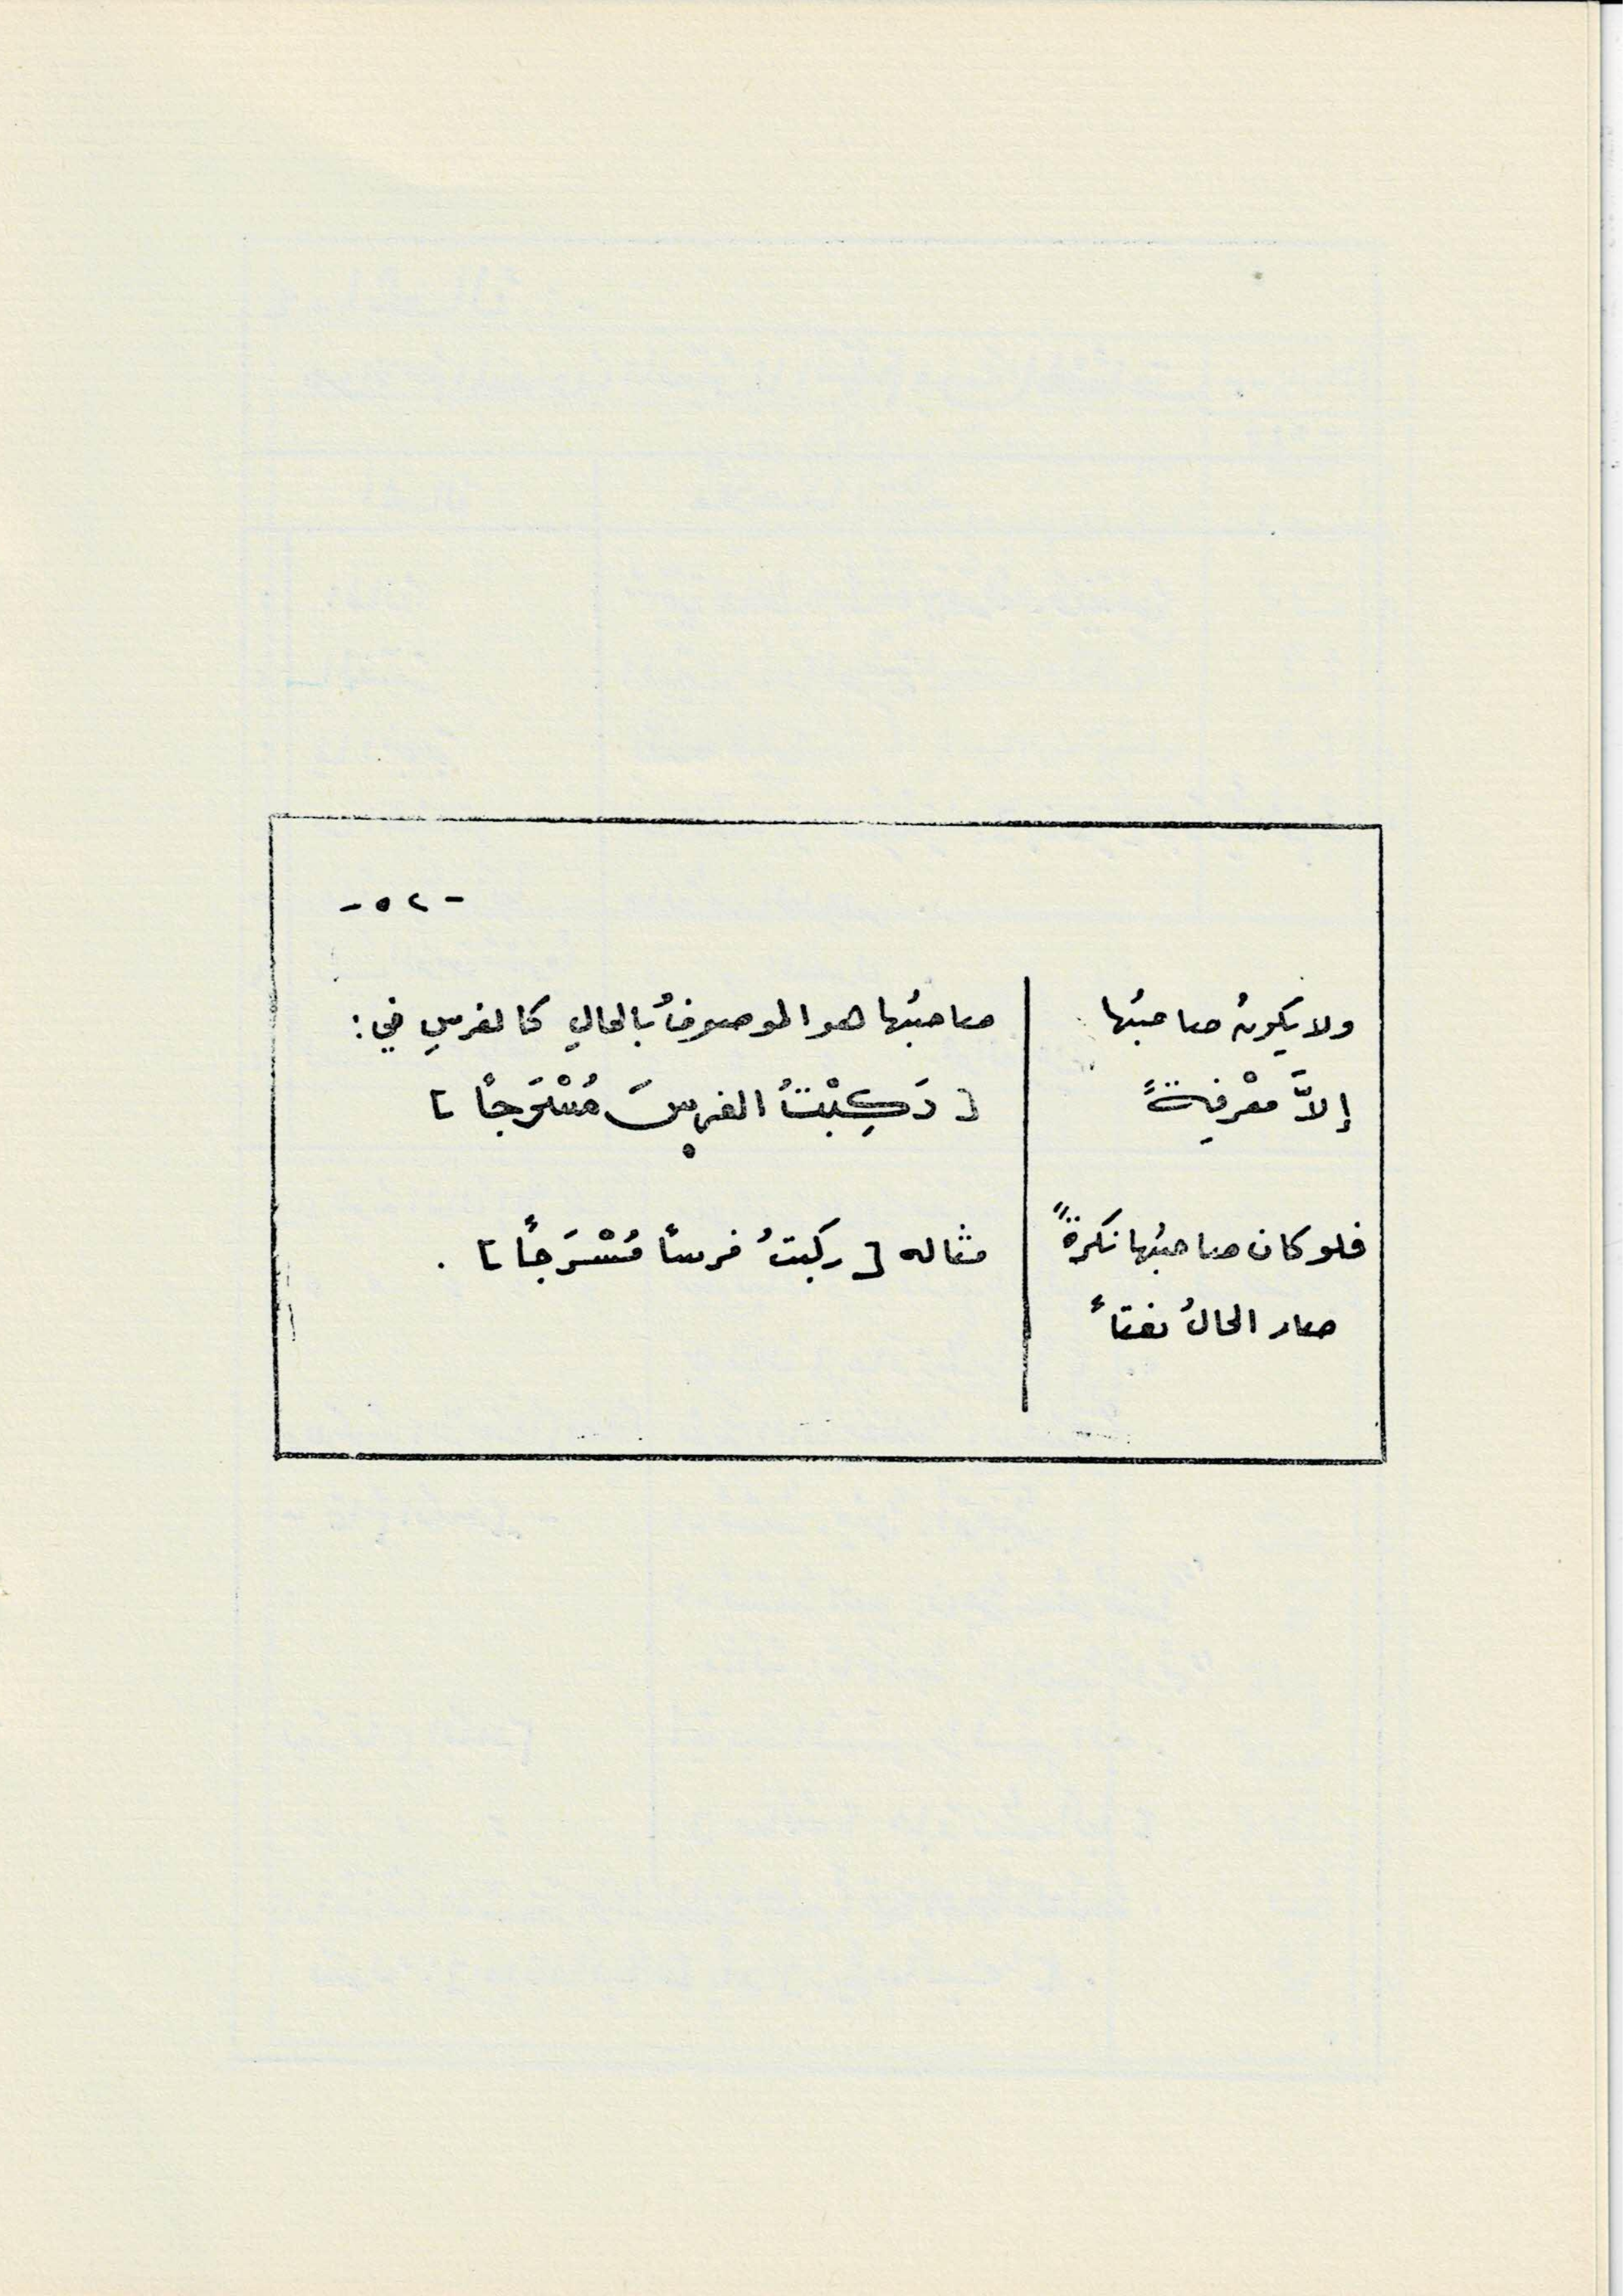 - ٥٢ -
ولا يكونُ صاحبُها
إلاَّ معْرِفةً
صاحبُها هو الموصوفُ بالحالِ كالفرسِ في :
[ رَكِبْتُ الفرسَ مُسْرَجاً ]
فلو كان صاحبُها نكرةً
صار الحالُ نعتاً
مثاله [ ركبتُ فرساً مُسْرَجاً ] .